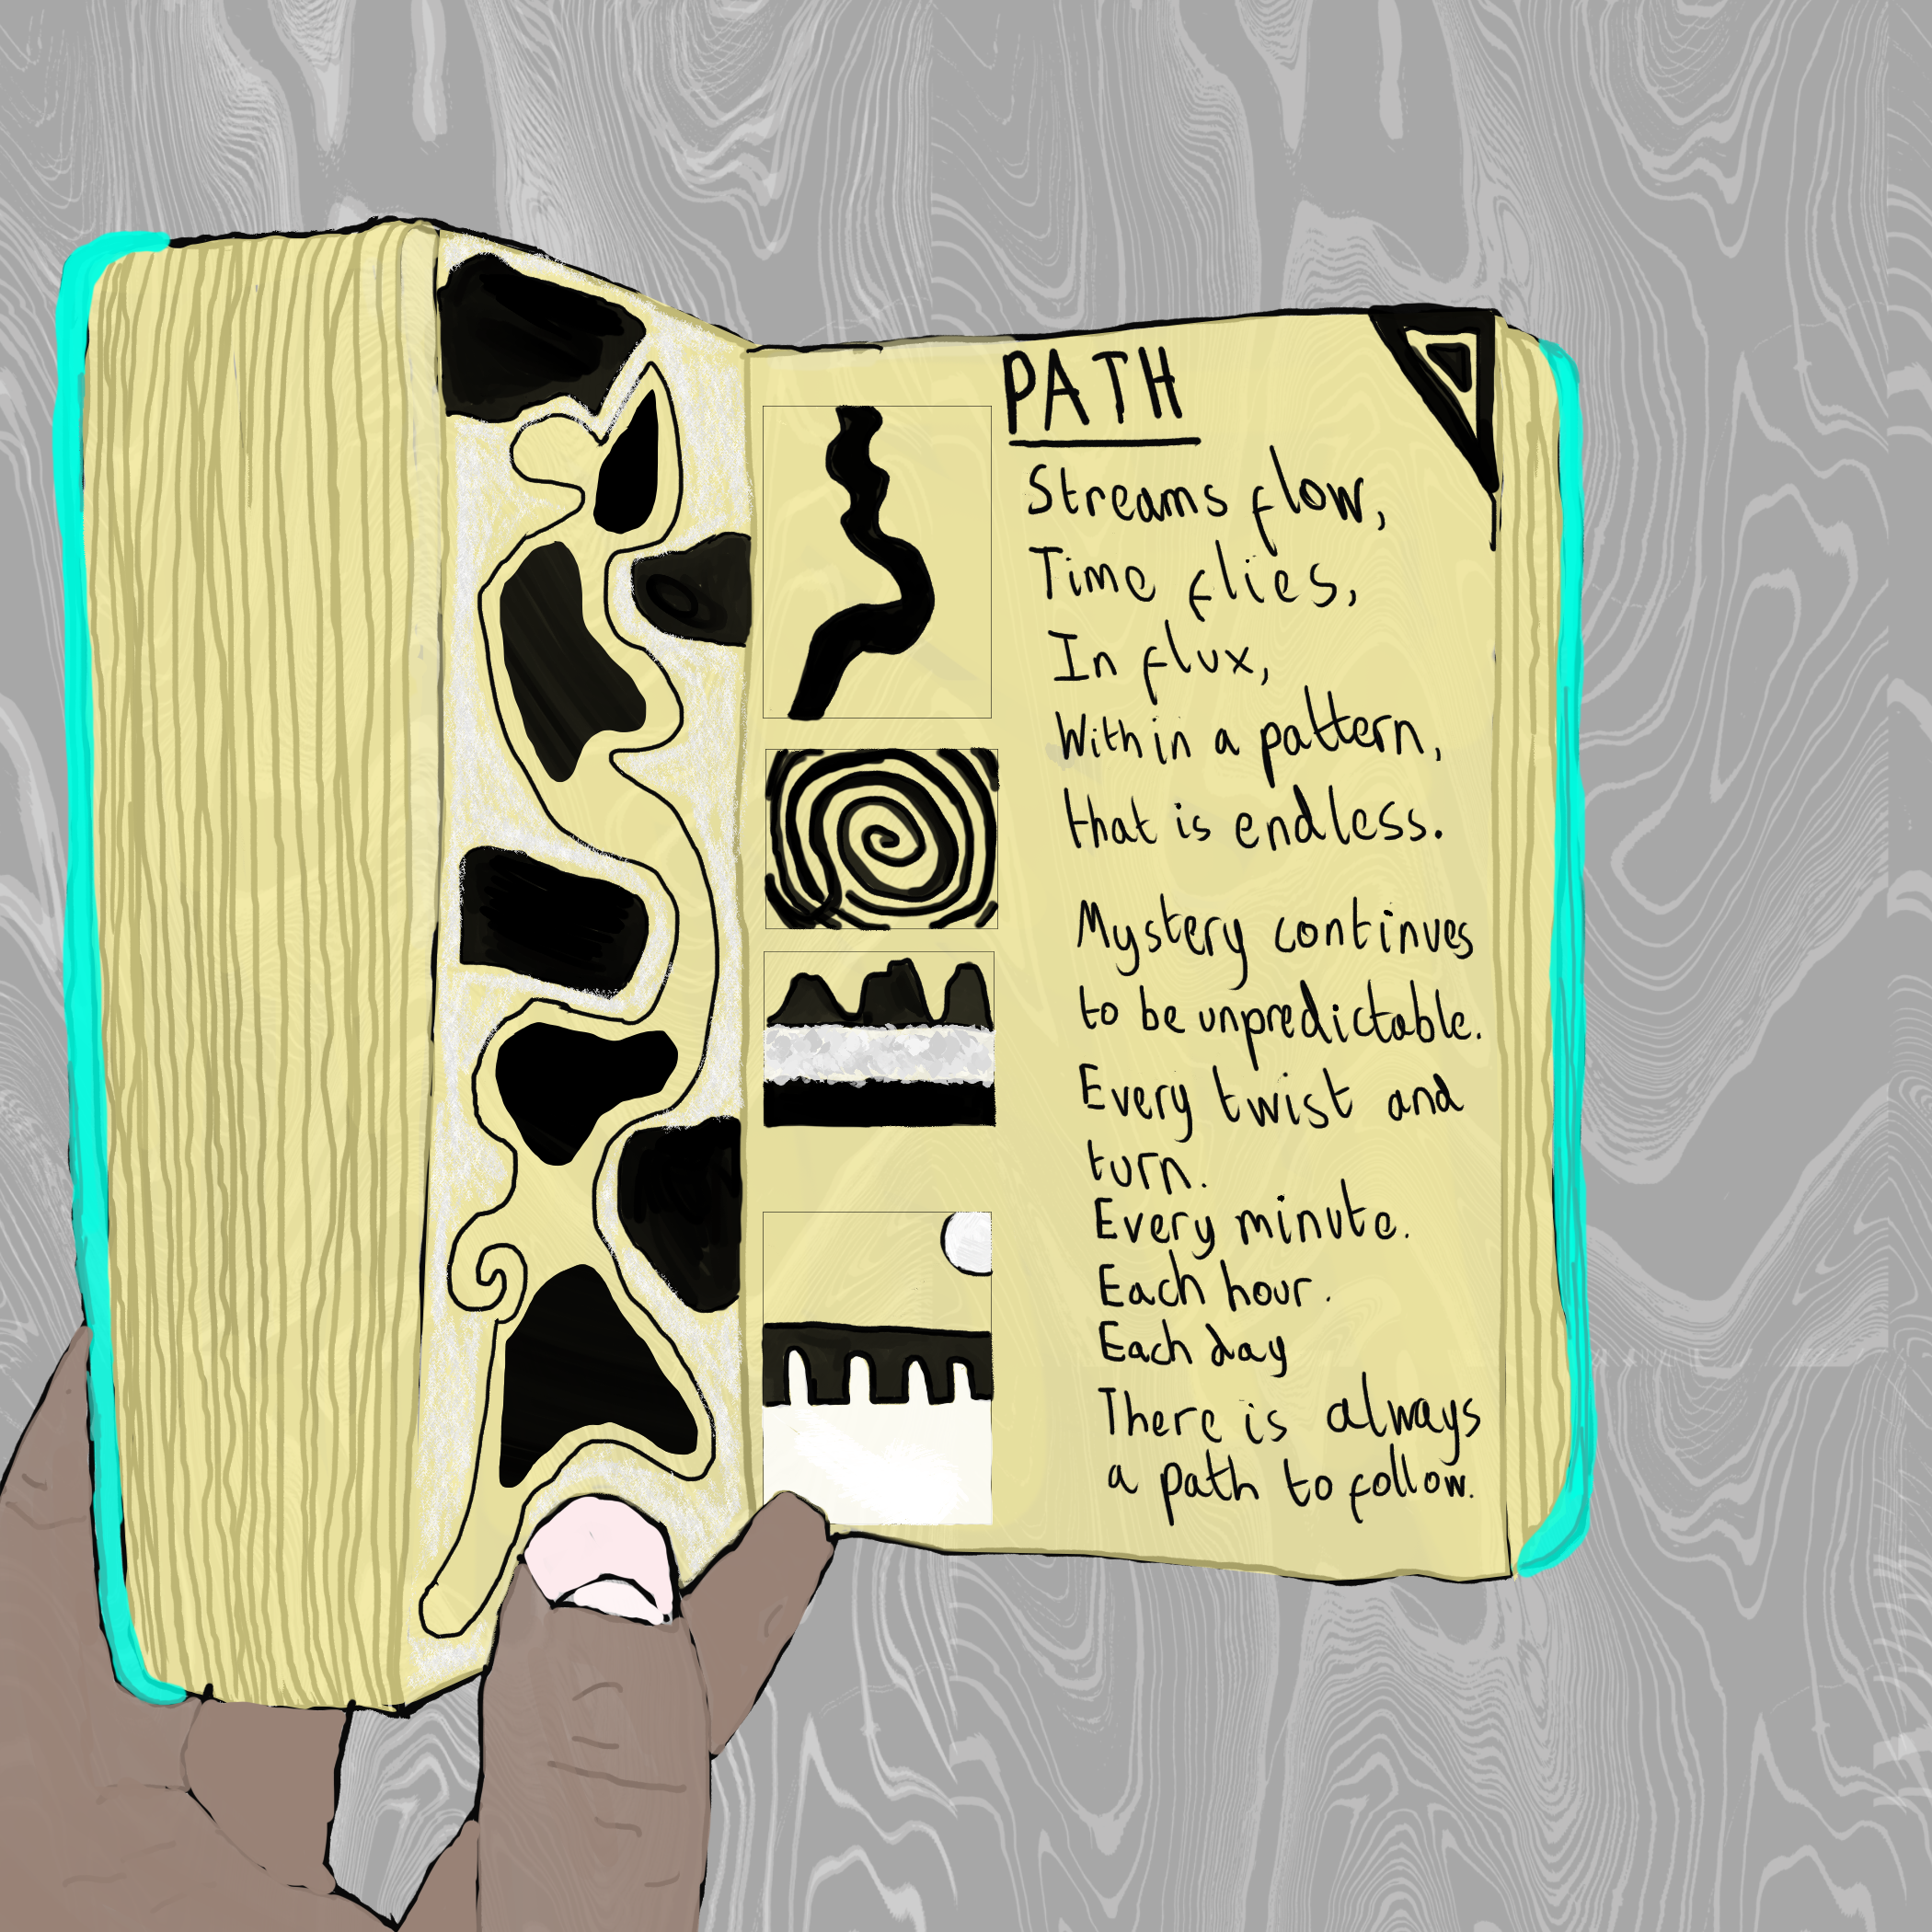 PATH
Streams flow,
Time flies,
In flux,
Within a pattern,
that is endless.
Mystery continues
to be unpredictable.
Every twist and
turn.
Every minute.
Each hour.
Each day
There is always
a path to follow.